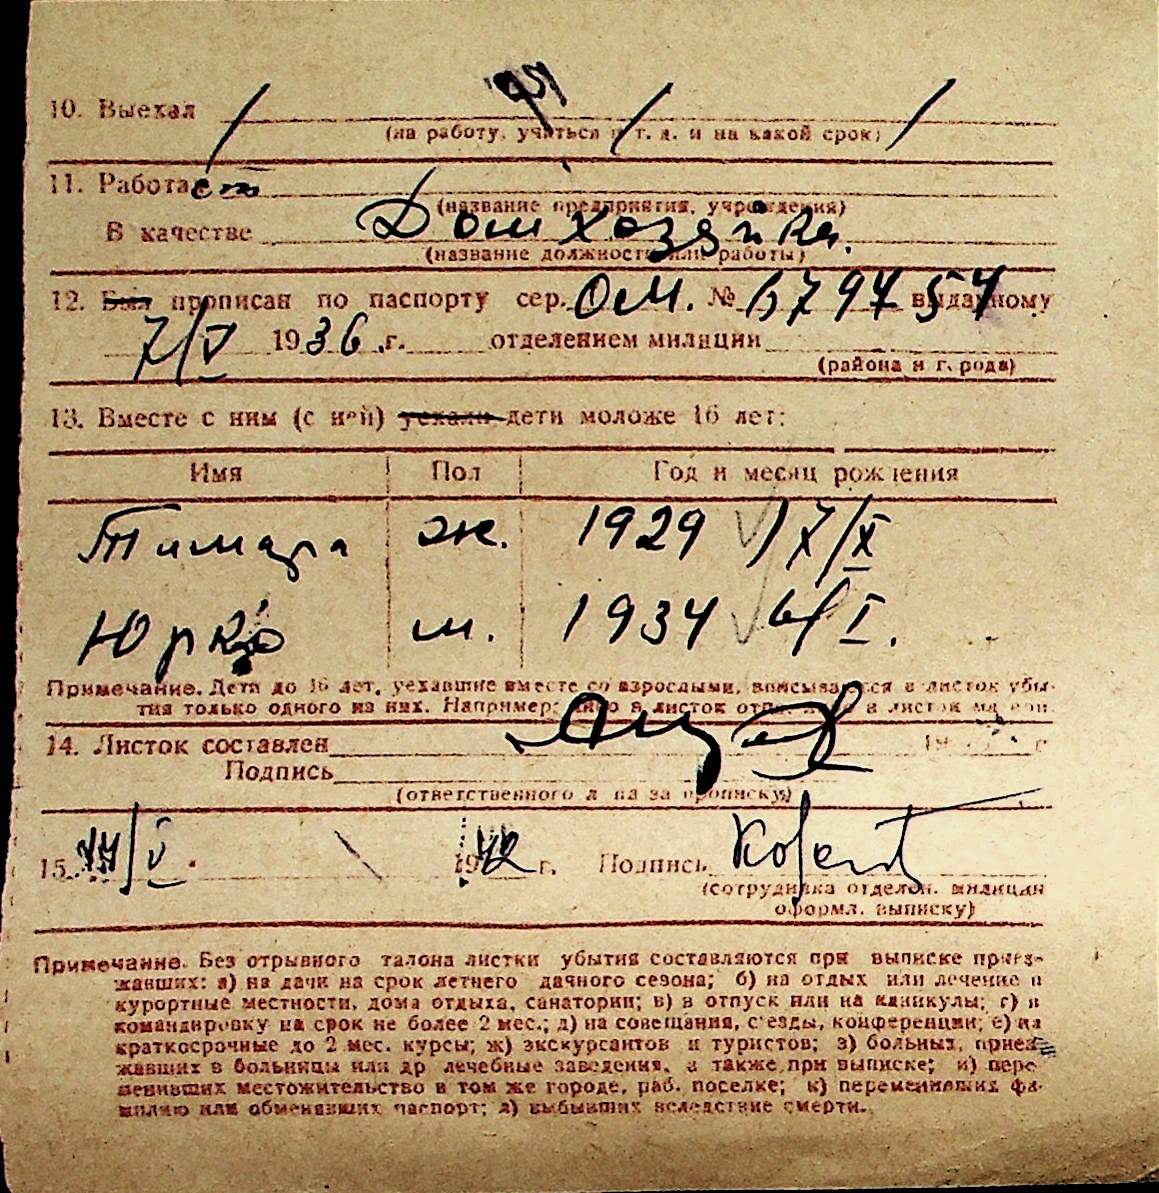 10. Выехал
(на работу, учиться и т. д. и на какой срок)
11. Работает
(название предприятия, учреждения)
В качестве Домхозяйка.
(название должности или работы)
12. Был прописан по паспорту сер. ОМ. № 679757 выданному
7/V 1936 .г. отделением милиции
(района и города)
13. Вместе с ним (с ней) уехали дети моложе 16 лет:
Имя Пол Год и месяц рождения
Тамара ж. 1929 17/X
Юрко м. 1934 6/I.
Примечание. Дети до 16 лет, уехавшие вместе со взрослыми, вписываются в листок убы-
тия только одного из них. Например: либо в листок отца, либо в листок матери.
14. Листок составлен 19 г
Подпись
(ответственного лица за прописку)
15. 14/V. 1942 г. Подпись
(сотрудника отделен. милиции
оформл. выписку)
Примечание. Без отрывного талона листки убытия составляются при выписке приез-
жавших: а) на дачи на срок летнего дачного сезона; б) на отдых или лечение в
курортные местности, дома отдыха, санатории; в) в отпуск или на каникулы; г) в
командировку на срок не более 2 мес.; д) на совещания, с'езды, конференции; е) на
краткосрочные до 2 мес. курсы; ж) экскурсантов и туристов; з) больных, приез-
жавших в больницы или др лечебные заведения, а также при выписке; и) пере-
менивших местожительство в том же городе, раб. поселке; к) переменивших фа-
милию или обменявших паспорт; л) выбывших вследствие смерти.